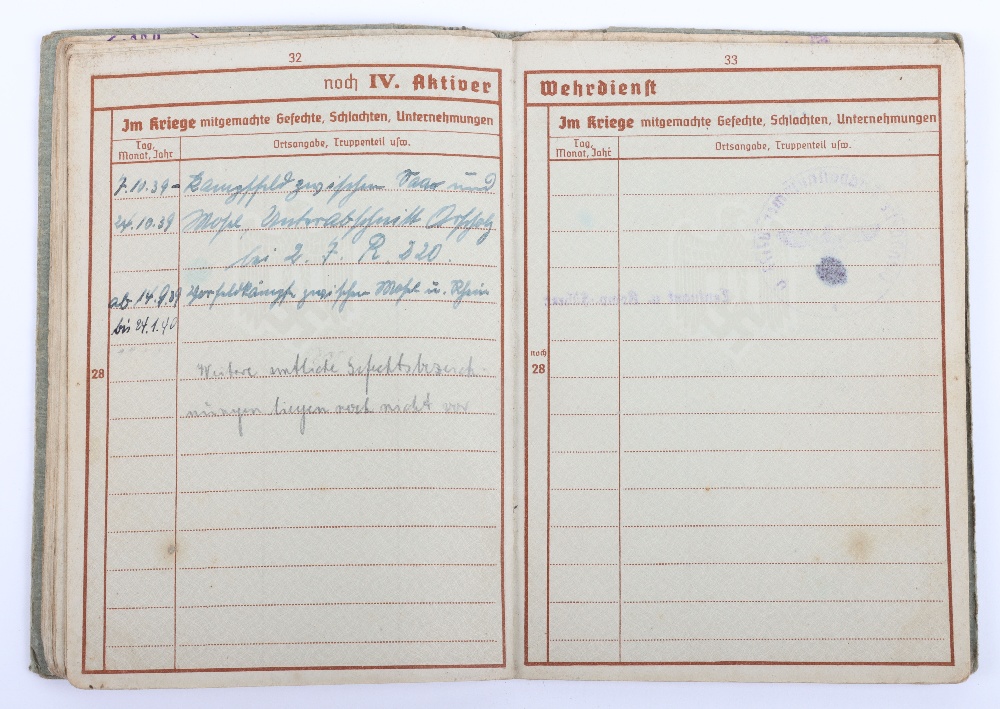 32
noch IV. Aktiver
Im Kriege mitgemachte Gefechte, Schlachten, Unternehmungen
Tag, Monat, Jahr
Ortsangabe, Truppenteil usw.
7.10.39 - Kampffeld zwischen Saar und
24.10.39 Mosel, Unterabschnitt Orscholz
bei 2. J. R. 320.
ab 14.9.39 Vorfeldkämpfe zwischen Mosel u. Rhein
bis 24.1.40
28
Weitere amtliche Gefechtsbezeich-
nungen liegen noch nicht vor
33
Wehrdienst
Im Kriege mitgemachte Gefechte, Schlachten, Unternehmungen
Tag, Monat, Jahr
Ortsangabe, Truppenteil usw.
noch
28